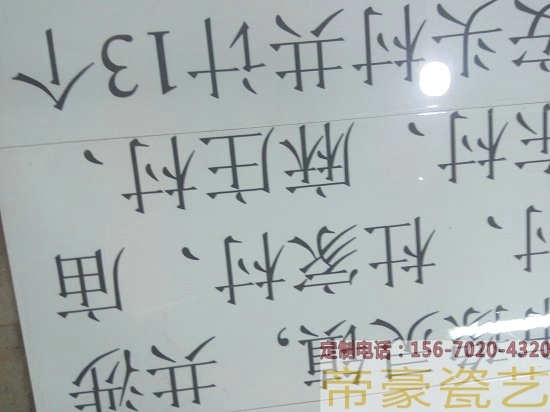 镇，共涉
村、杜家村、庙
村、麻庄村、
头村共计13个
定制电话：156-7020-4320
帝豪瓷艺